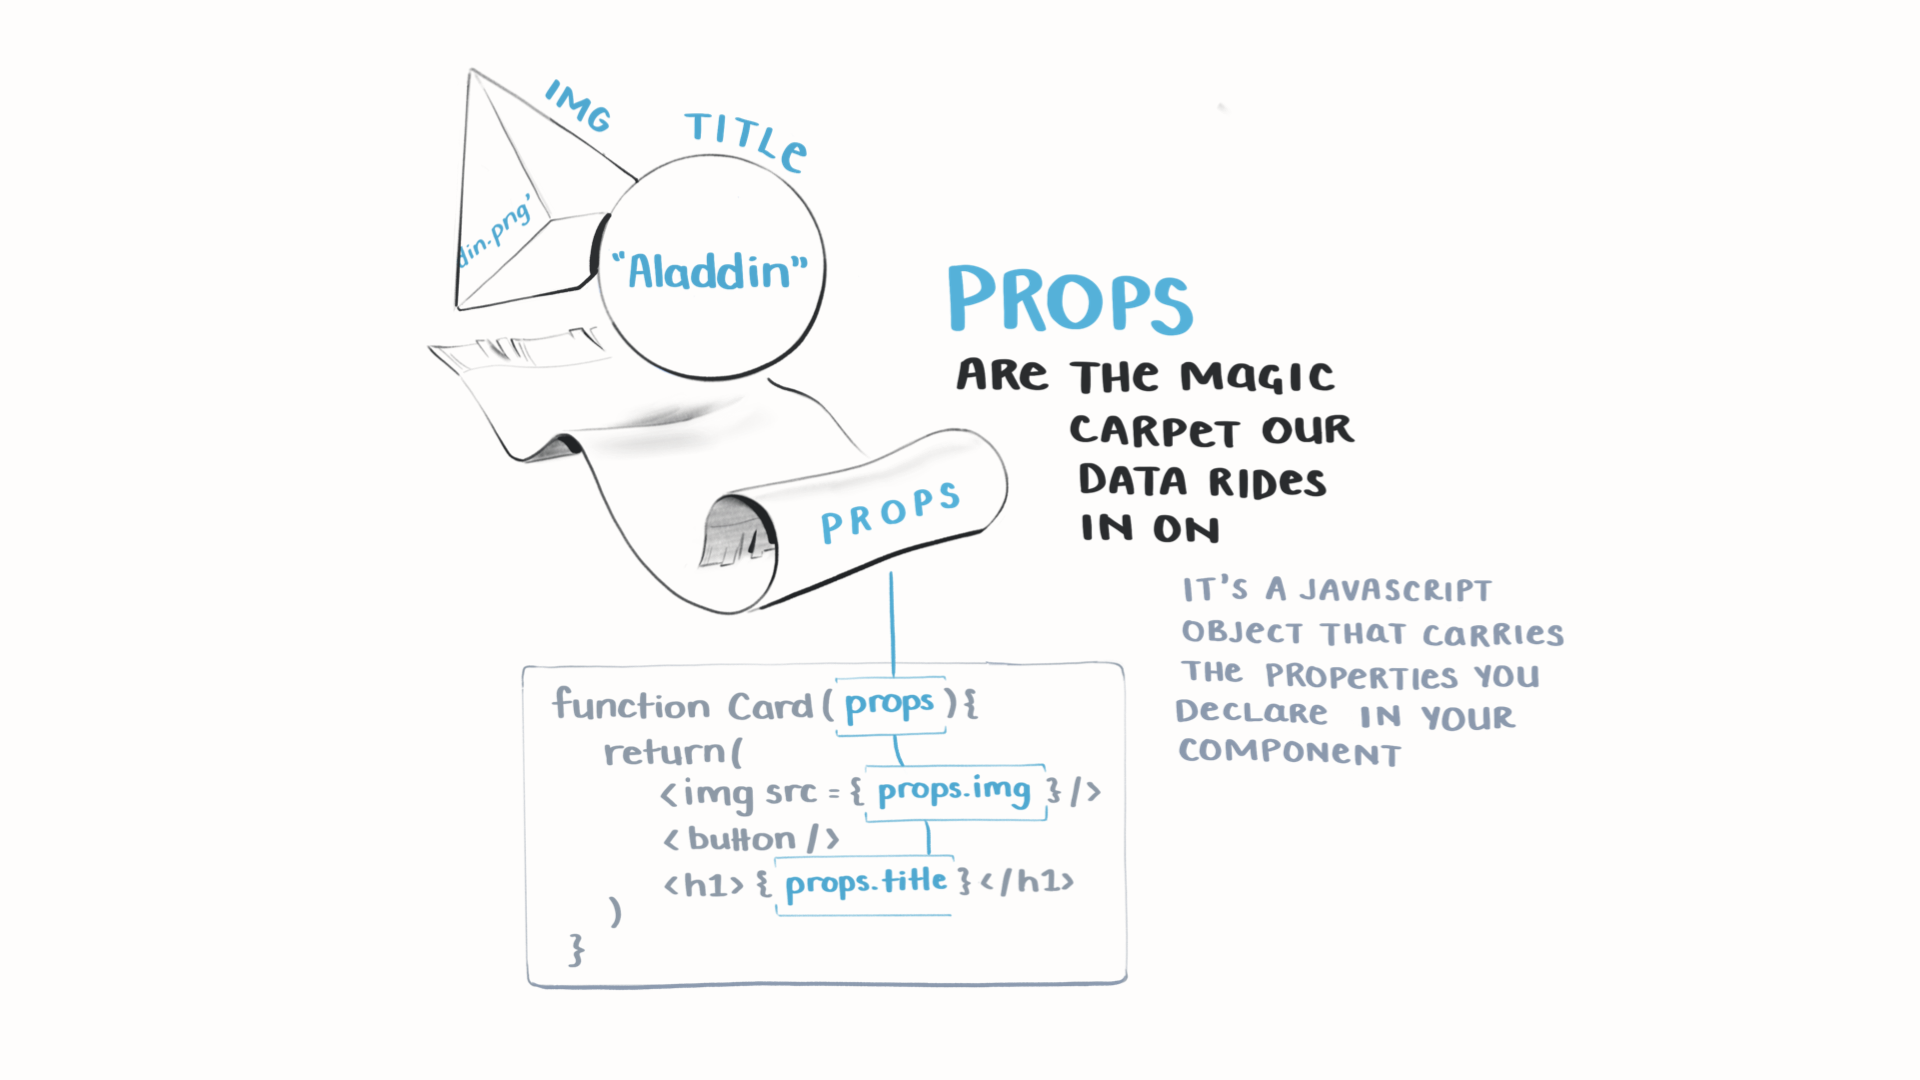 IMG
TITLE
din.png'
"Aladdin"
PROPS
ARE THE MAGIC
CARPET OUR
DATA RIDES
IN ON
PROPS
IT'S A JAVASCRIPT
OBJECT THAT CARRIES
THE PROPERTIES YOU
DECLARE IN YOUR
COMPONENT
function Card(props){
return(
<img src={props.img}/>
<button/>
<h1>{props.title}</h1>
)
}